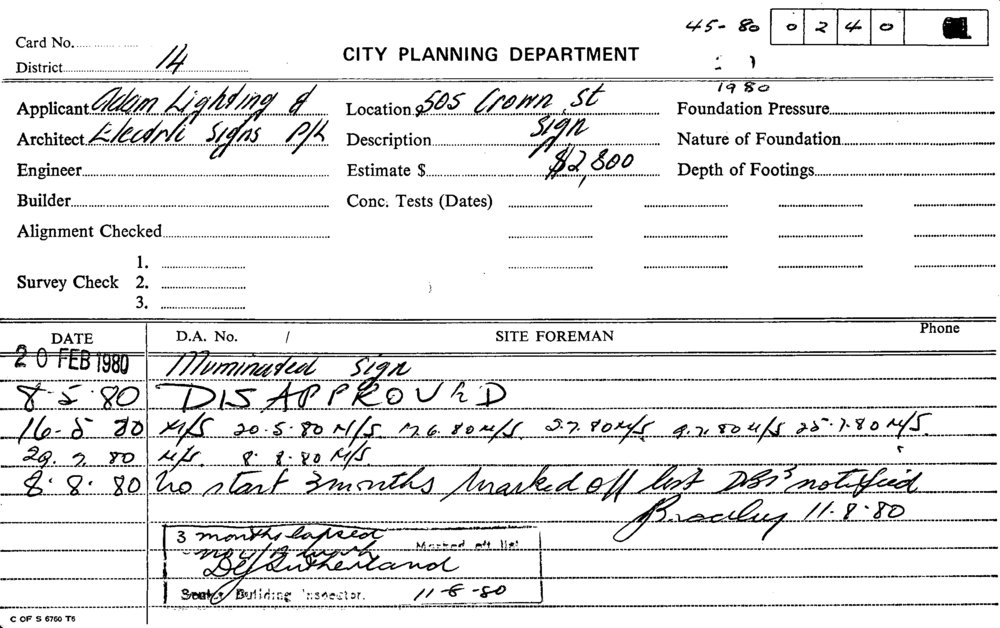 45-80 0 2 4 0
Card No.
District 14
CITY PLANNING DEPARTMENT
1980
Applicant Adam Lighting &
Location 505 Crown St
Foundation Pressure
Architect Electric Signs P/L
Description Sign
Nature of Foundation
Engineer
Estimate $ $2,800
Depth of Footings
Builder
Conc. Tests (Dates)
Alignment Checked
1.
Survey Check 2.
3.
DATE D.A. No. / SITE FOREMAN Phone
20 FEB 1980 Illuminated Sign
8.5.80 DISAPPROVED
16.5.80 N/S 20.5.80 N/S. 17.6.80 N/S 2.7.80 N/S 9.7.80 N/S 25.7.80 N/S.
29.7.80 N/S. 8.8.80 N/S.
8.8.80 No start 3 months Marked off list DBS notified
11-8-80
3 months lapsed
Marked off list
no work
Sutherland
Senior Building Inspector. 11-8-80
C OF S 6760 T6